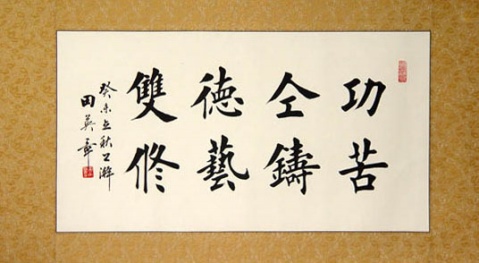 功苦
仝鑄
德藝
雙修
癸未立秋
田英章